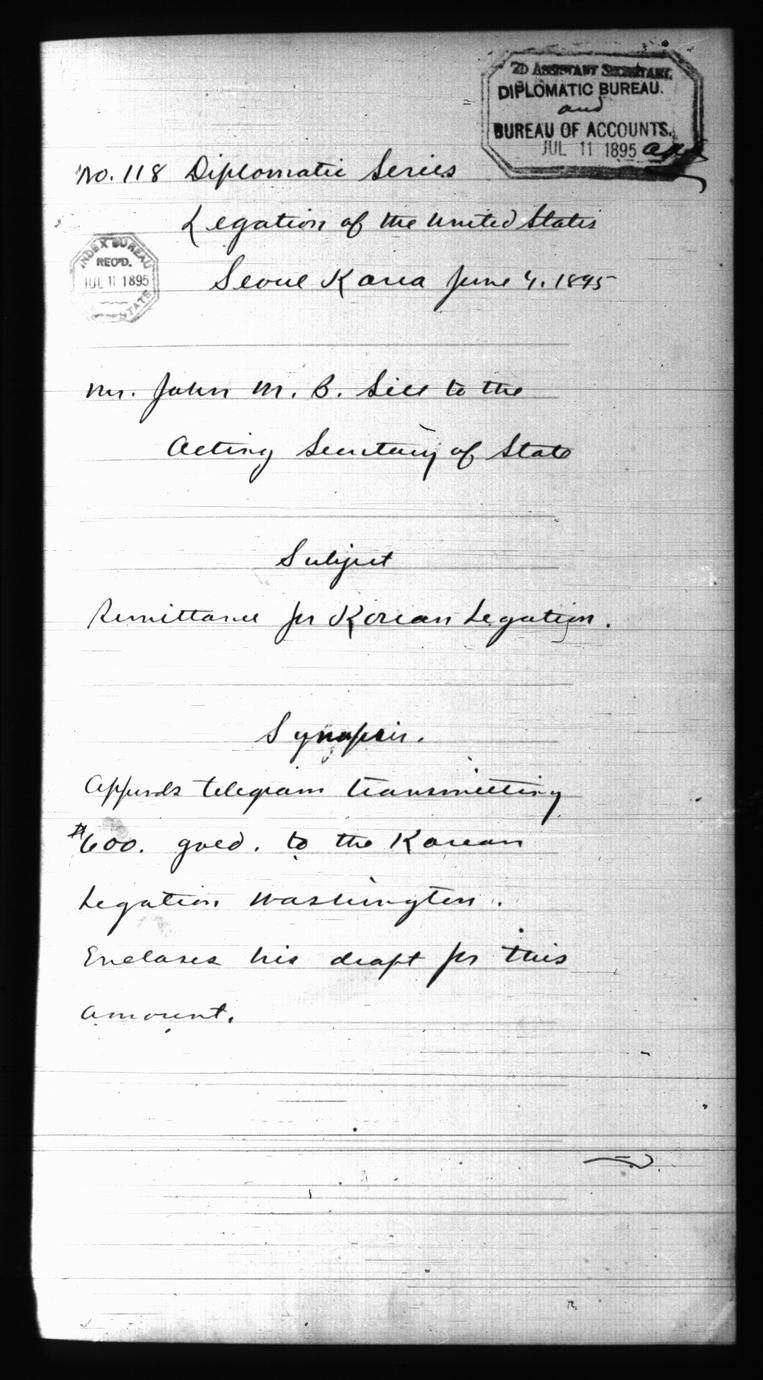 2D ASSISTANT SECRETARY.
DIPLOMATIC BUREAU.
and
BUREAU OF ACCOUNTS.
JUL 11 1895
No. 118 Diplomatic Series
Legation of the United States
INDEX BUREAU
REC'D.
JUL 11 1895
Seoul Korea June 7, 1895
Mr. John M. B. Sill to the
Acting Secretary of State
Subject
Remittance for Korean Legation.
Synopsis.
Appends telegram transmitting
$600. gold. to the Korean
Legation Washington.
Encloses his draft for this
amount.